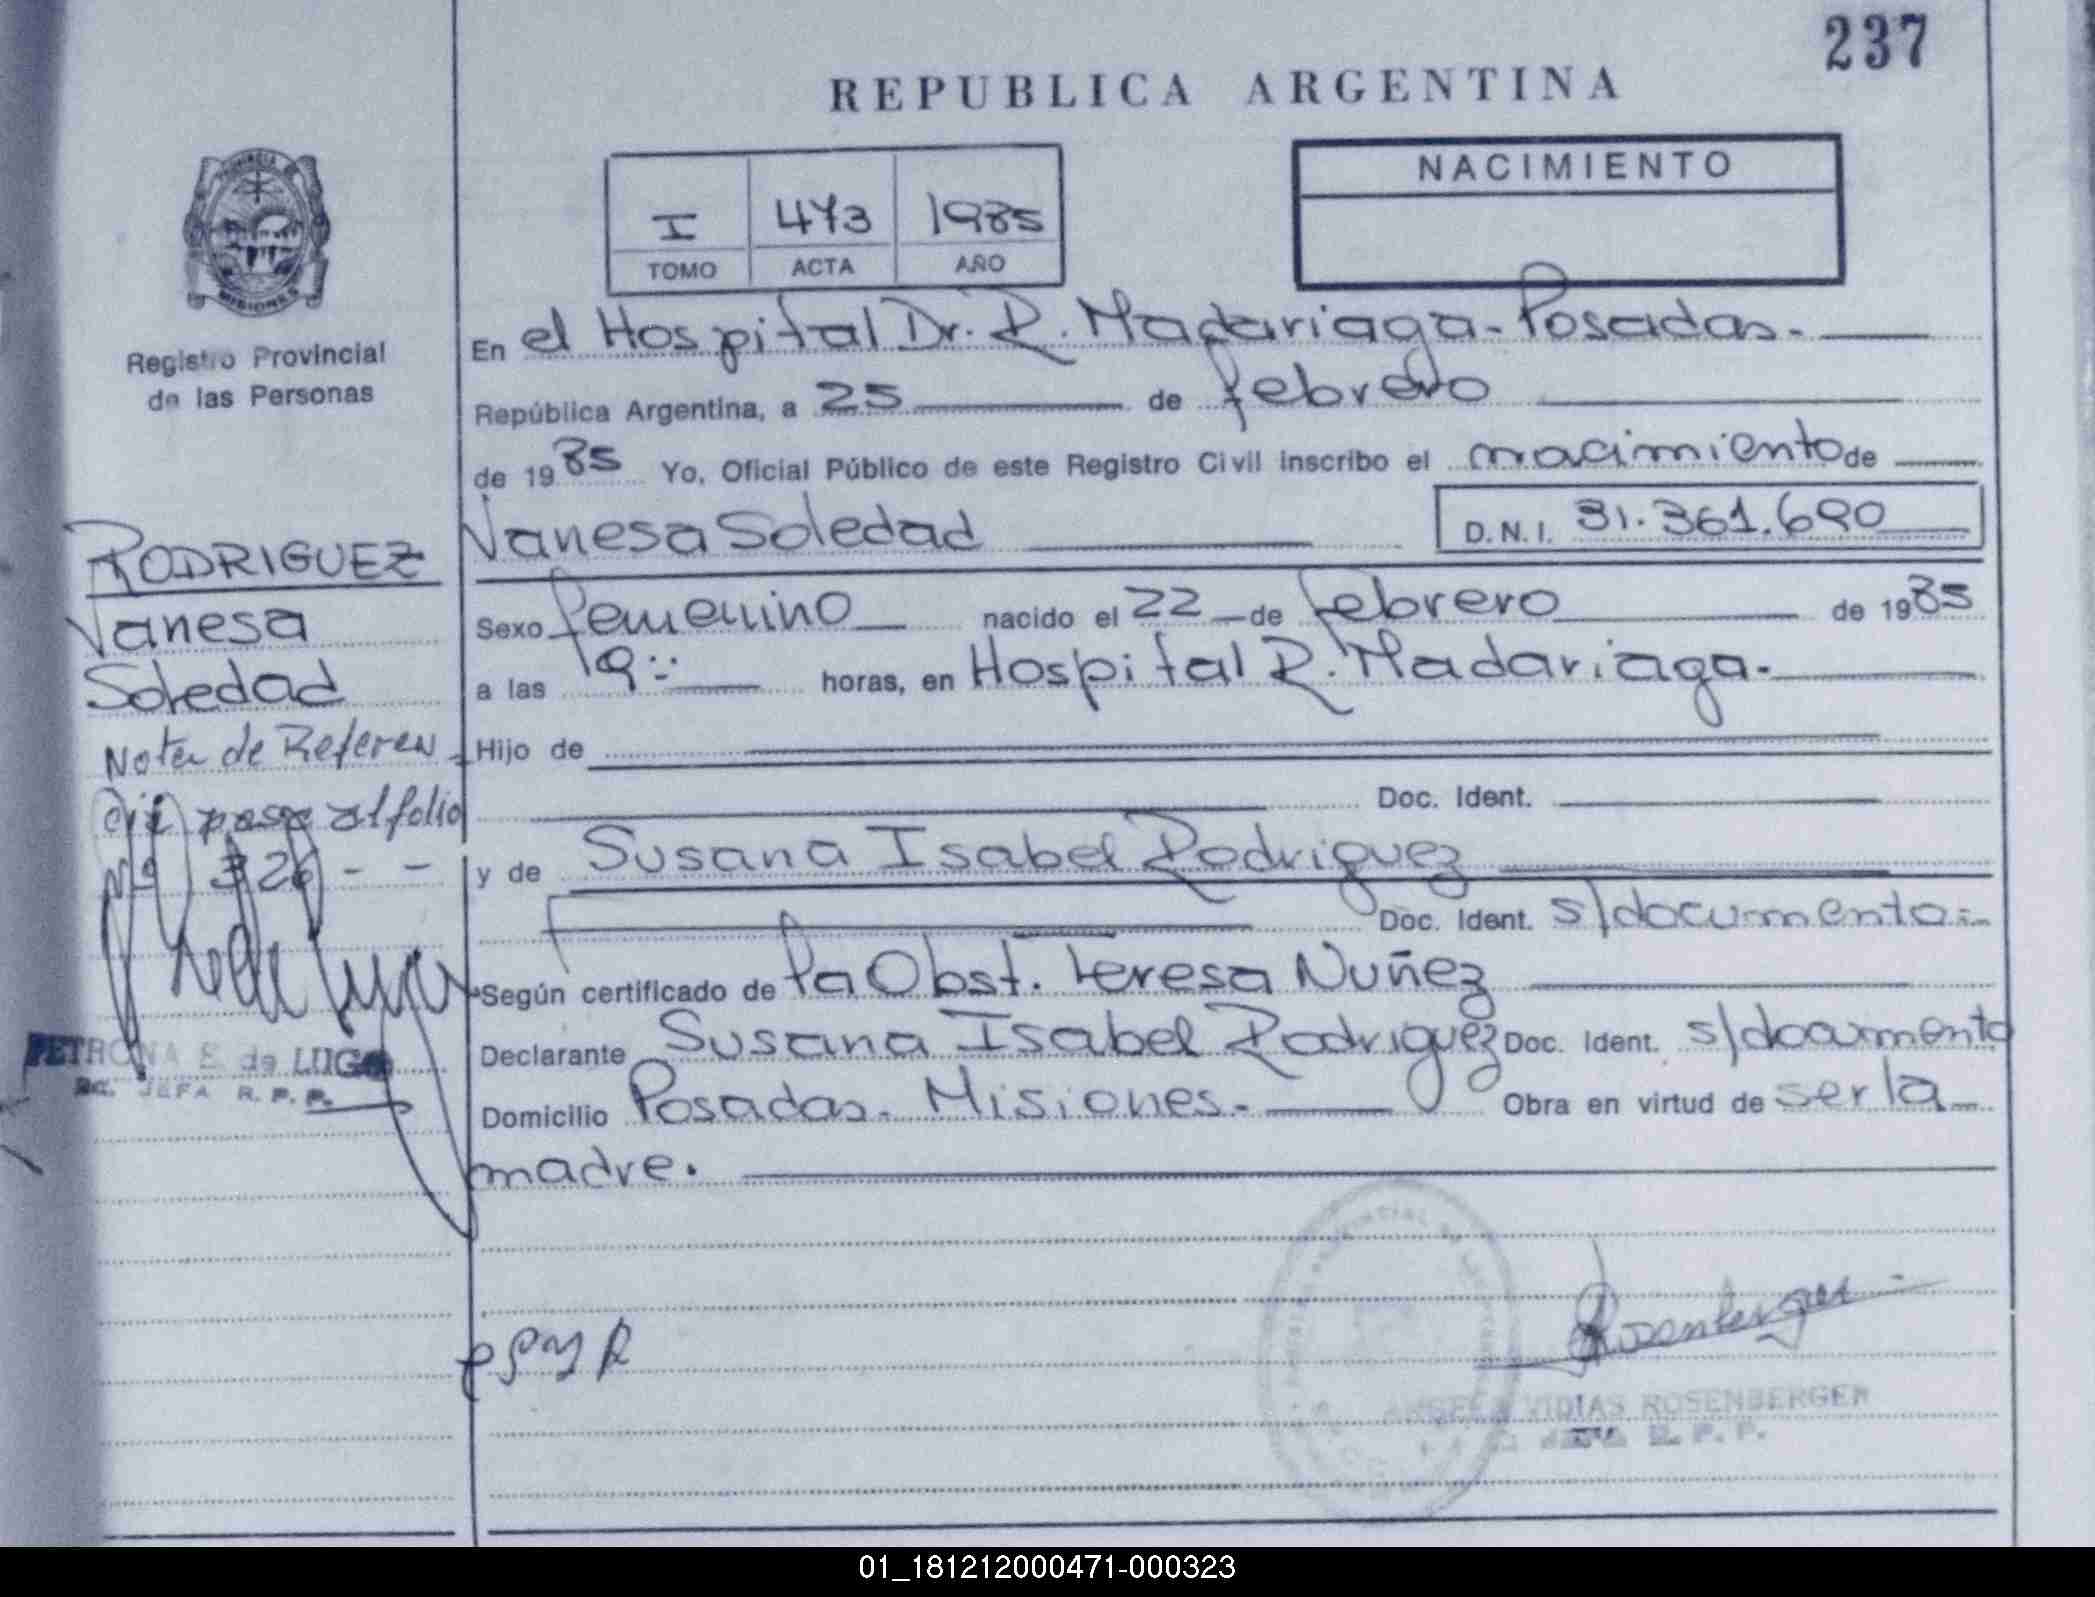 237
REPUBLICA ARGENTINA
PROVINCIA
MISIONES
Registro Provincial
de las Personas
I 473 1985
TOMO ACTA AÑO
NACIMIENTO
En el Hospital Dr. R. Madariaga - Posadas.
República Argentina, a 25 de febrero
de 1985 Yo, Oficial Público de este Registro Civil inscribo el nacimiento de
Vanesa Soledad D.N.I. 31.361.690
RODRIGUEZ
Vanesa
Soledad
Nota de Referen
cia pasa al folio
Nº 326 - -
PETRONA E. de LUGO
JEFA R. P. P.
Sexo femenino nacido el 22 de febrero de 1985
a las 19:: horas, en Hospital R. Madariaga.
Hijo de
Doc. Ident.
y de Susana Isabel Rodriguez
Doc. Ident. s/documento.
Según certificado de la Obst. Teresa Nuñez
Declarante Susana Isabel Rodriguez Doc. Ident. s/documento
Domicilio Posadas. Misiones. Obra en virtud de ser la
madre.
Rosenberger
ANGELA VIDIAS ROSENBERGER
JEFA R. P. P.
01_181212000471-000323